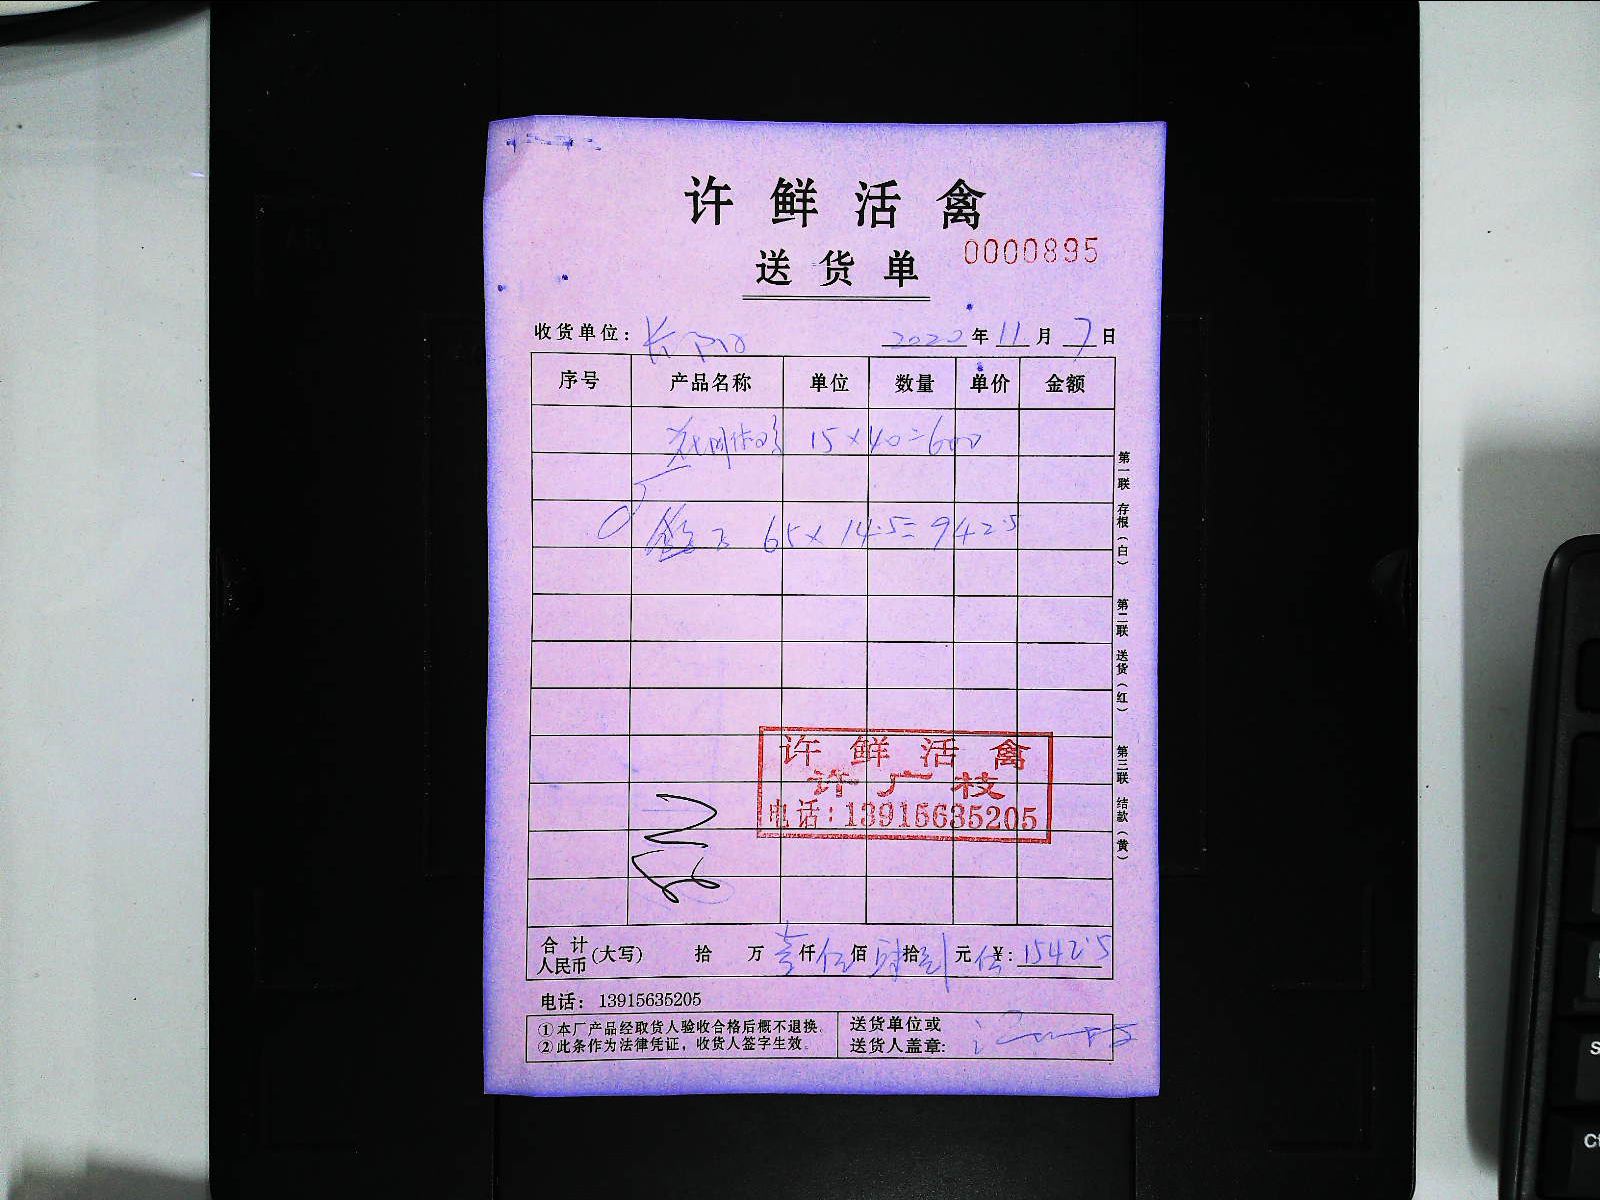 许鲜活禽
送货单
0000895
收货单位: 2020年11月7日
序号 产品名称 单位 数量 单价 金额
15×40=600
65×14.5=942.5
第一联 存根(白)
第二联 送货(红)
第三联 结款(黄)
许鲜活禽
许广枝
电话:13915635205
合计人民币(大写) 拾 万 壹仟伍佰肆拾贰元伍 ¥:1542.5
电话: 13915635205
①本厂产品经取货人验收合格后概不退换。
②此条作为法律凭证,收货人签字生效。
送货单位或
送货人盖章: